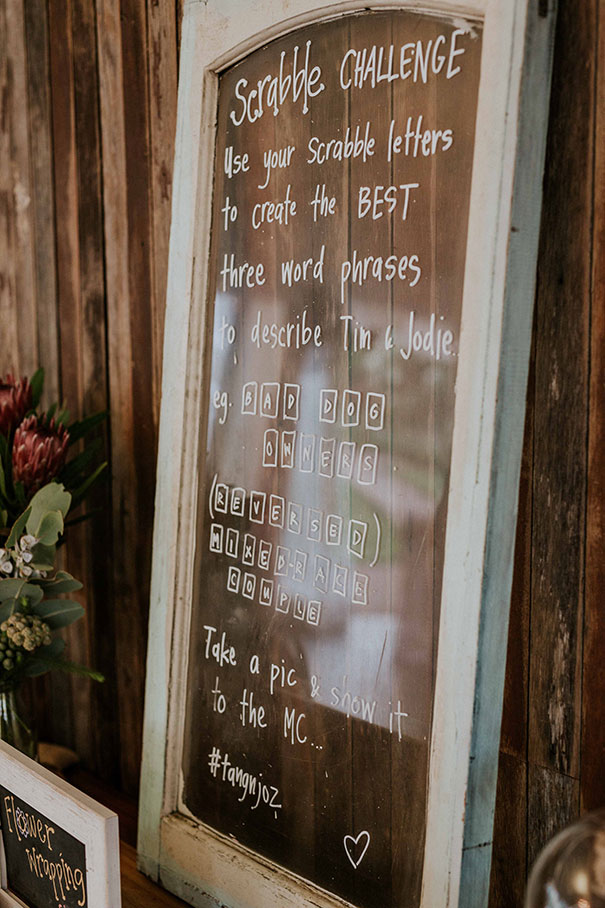 Scrabble CHALLENGE
Use your Scrabble letters
to create the BEST
three word phrases
to describe Tim & Jodie.
eg. BAD DOG
OWNERS
(REVERSED)
MIXED-RACE
COUPLE
Take a pic & show it
to the MC...
#tangnjoz
Flower
Wrapping